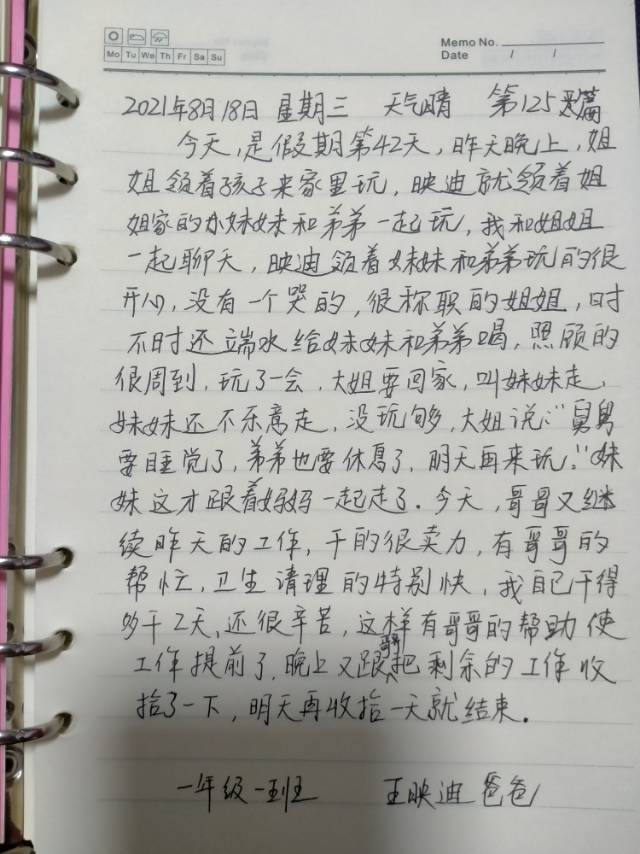 Mo Tu We Th Fr Sa Su
Memo No.
Date / /
2021年8月18日 星期三 天气晴 第125篇
今天,是假期第42天,昨天晚上,姐
姐领着孩子来家里玩,映迪就领着姐
姐家的小妹妹和弟弟一起玩,我和姐姐
一起聊天,映迪领着妹妹和弟弟玩的很
开心,没有一个哭的,很称职的姐姐,时
不时还端水给妹妹和弟弟喝,照顾的
很周到,玩了一会,大姐要回家,叫妹妹走,
妹妹还不乐意走,没玩够,大姐说:“舅舅
要睡觉了,弟弟也要休息了,明天再来玩。”妹
妹这才跟着妈妈一起走了。今天,哥哥又继
续昨天的工作,干的很卖力,有哥哥的
帮忙,卫生清理的特别快,我自己干得
多干2天、还很辛苦,这样有哥哥的帮助使
工作提前了,晚上又跟哥哥把剩余的工作收
拾了一下,明天再收拾一天就结束。
一年级一班 王映迪爸爸